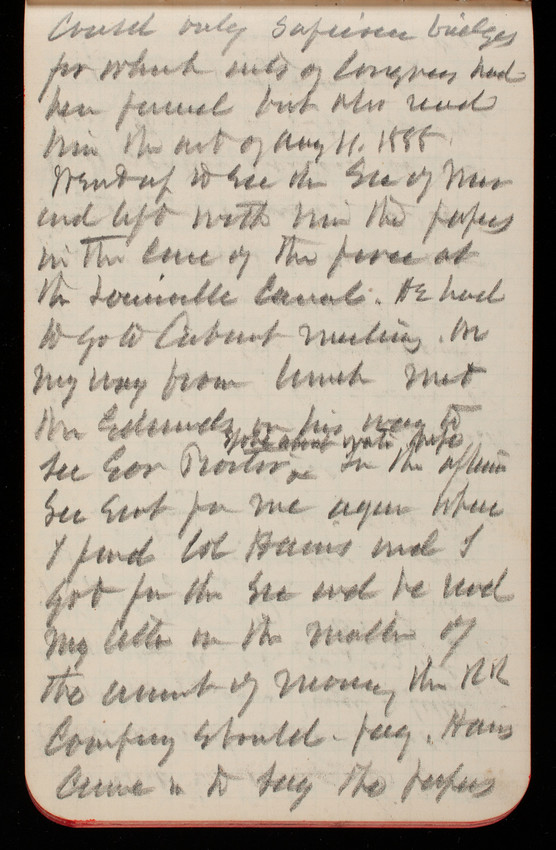 could only supervise bridges
for which acts of Congress had
been passed but also read
him the act of Aug 11. 1888
Went up to see the Sec of War
and left with him the papers
in the case of the fence at
the Louisville Canal. He had
to go to Cabinet meeting. On
my way from lunch met
Mr Edmunds on his way to
see Gov Proctor
about water pipe
In the aftern
Sec sent for me again where
I found Col Hains and I
got for the Sec and he read
my letter on the matter of
the amount of money the RR
Company should pay. Hains
came in to say the papers